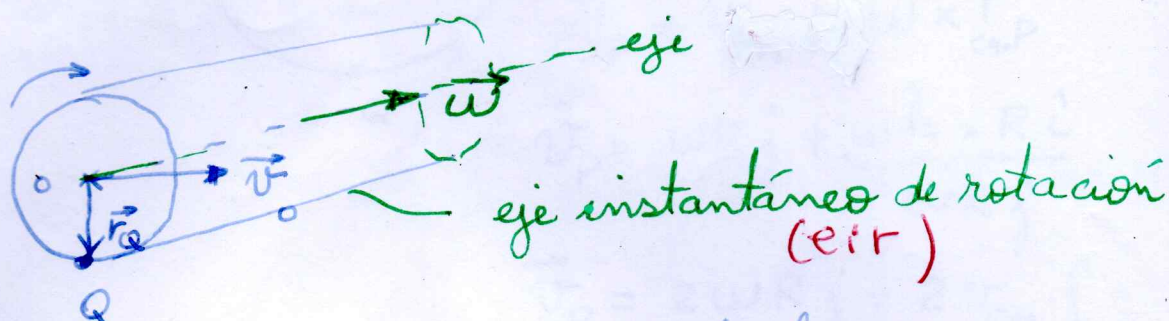 eje
ω
o
v
o
r_Q
eje instantáneo de rotación
(eir)
Q